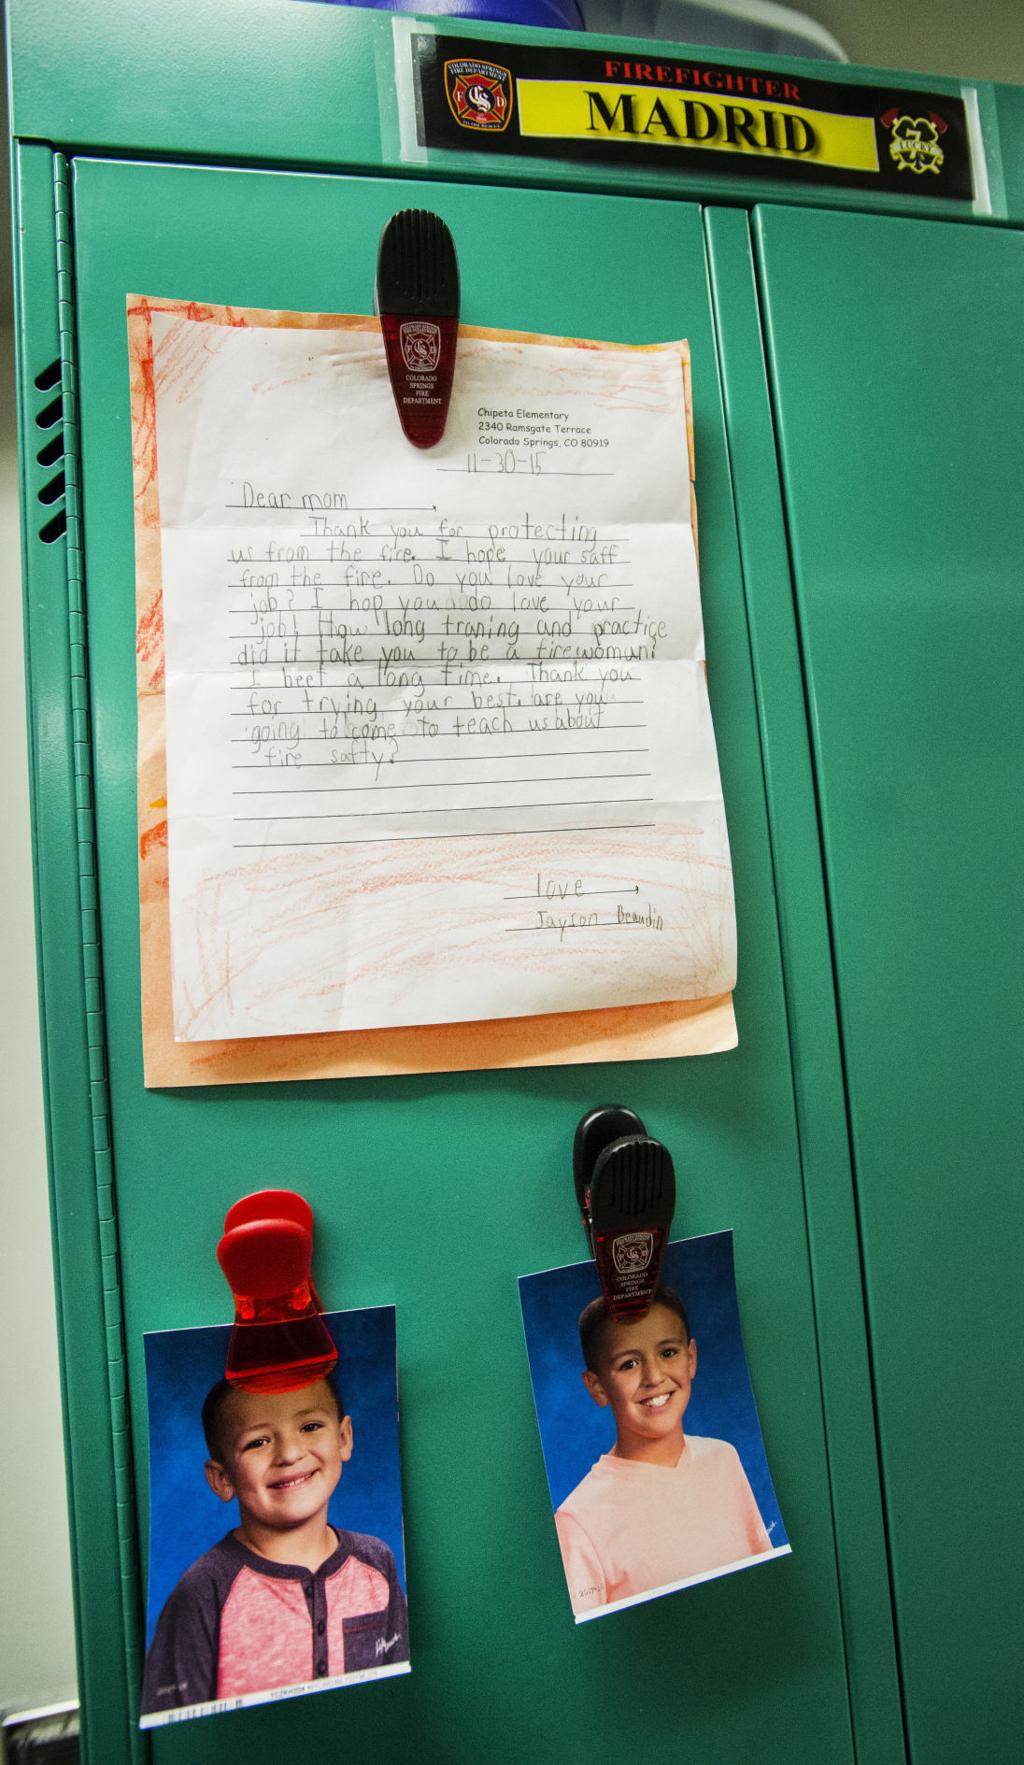 COLORADO SPRINGS
FIRE DEPARTMENT
F D
FIREFIGHTER
MADRID
7
LUCKY
COLORADO
SPRINGS
FIRE
DEPARTMENT
Chipeta Elementary
2340 Ramsgate Terrace
Colorado Springs, CO 80919
11-30-15
Dear mom,
Thank you for protecting
us from the fire. I hope your saff
from the fire. Do you love your
job? I hop you do love your
job! How long traning and practice
did it take you to be a firewoman?
I beet a long time. Thank you
for trying your best. are you
going to come to teach us about
fire safty?
love,
Jayson Beaudin
COLORADO
SPRINGS
FIRE
DEPARTMENT